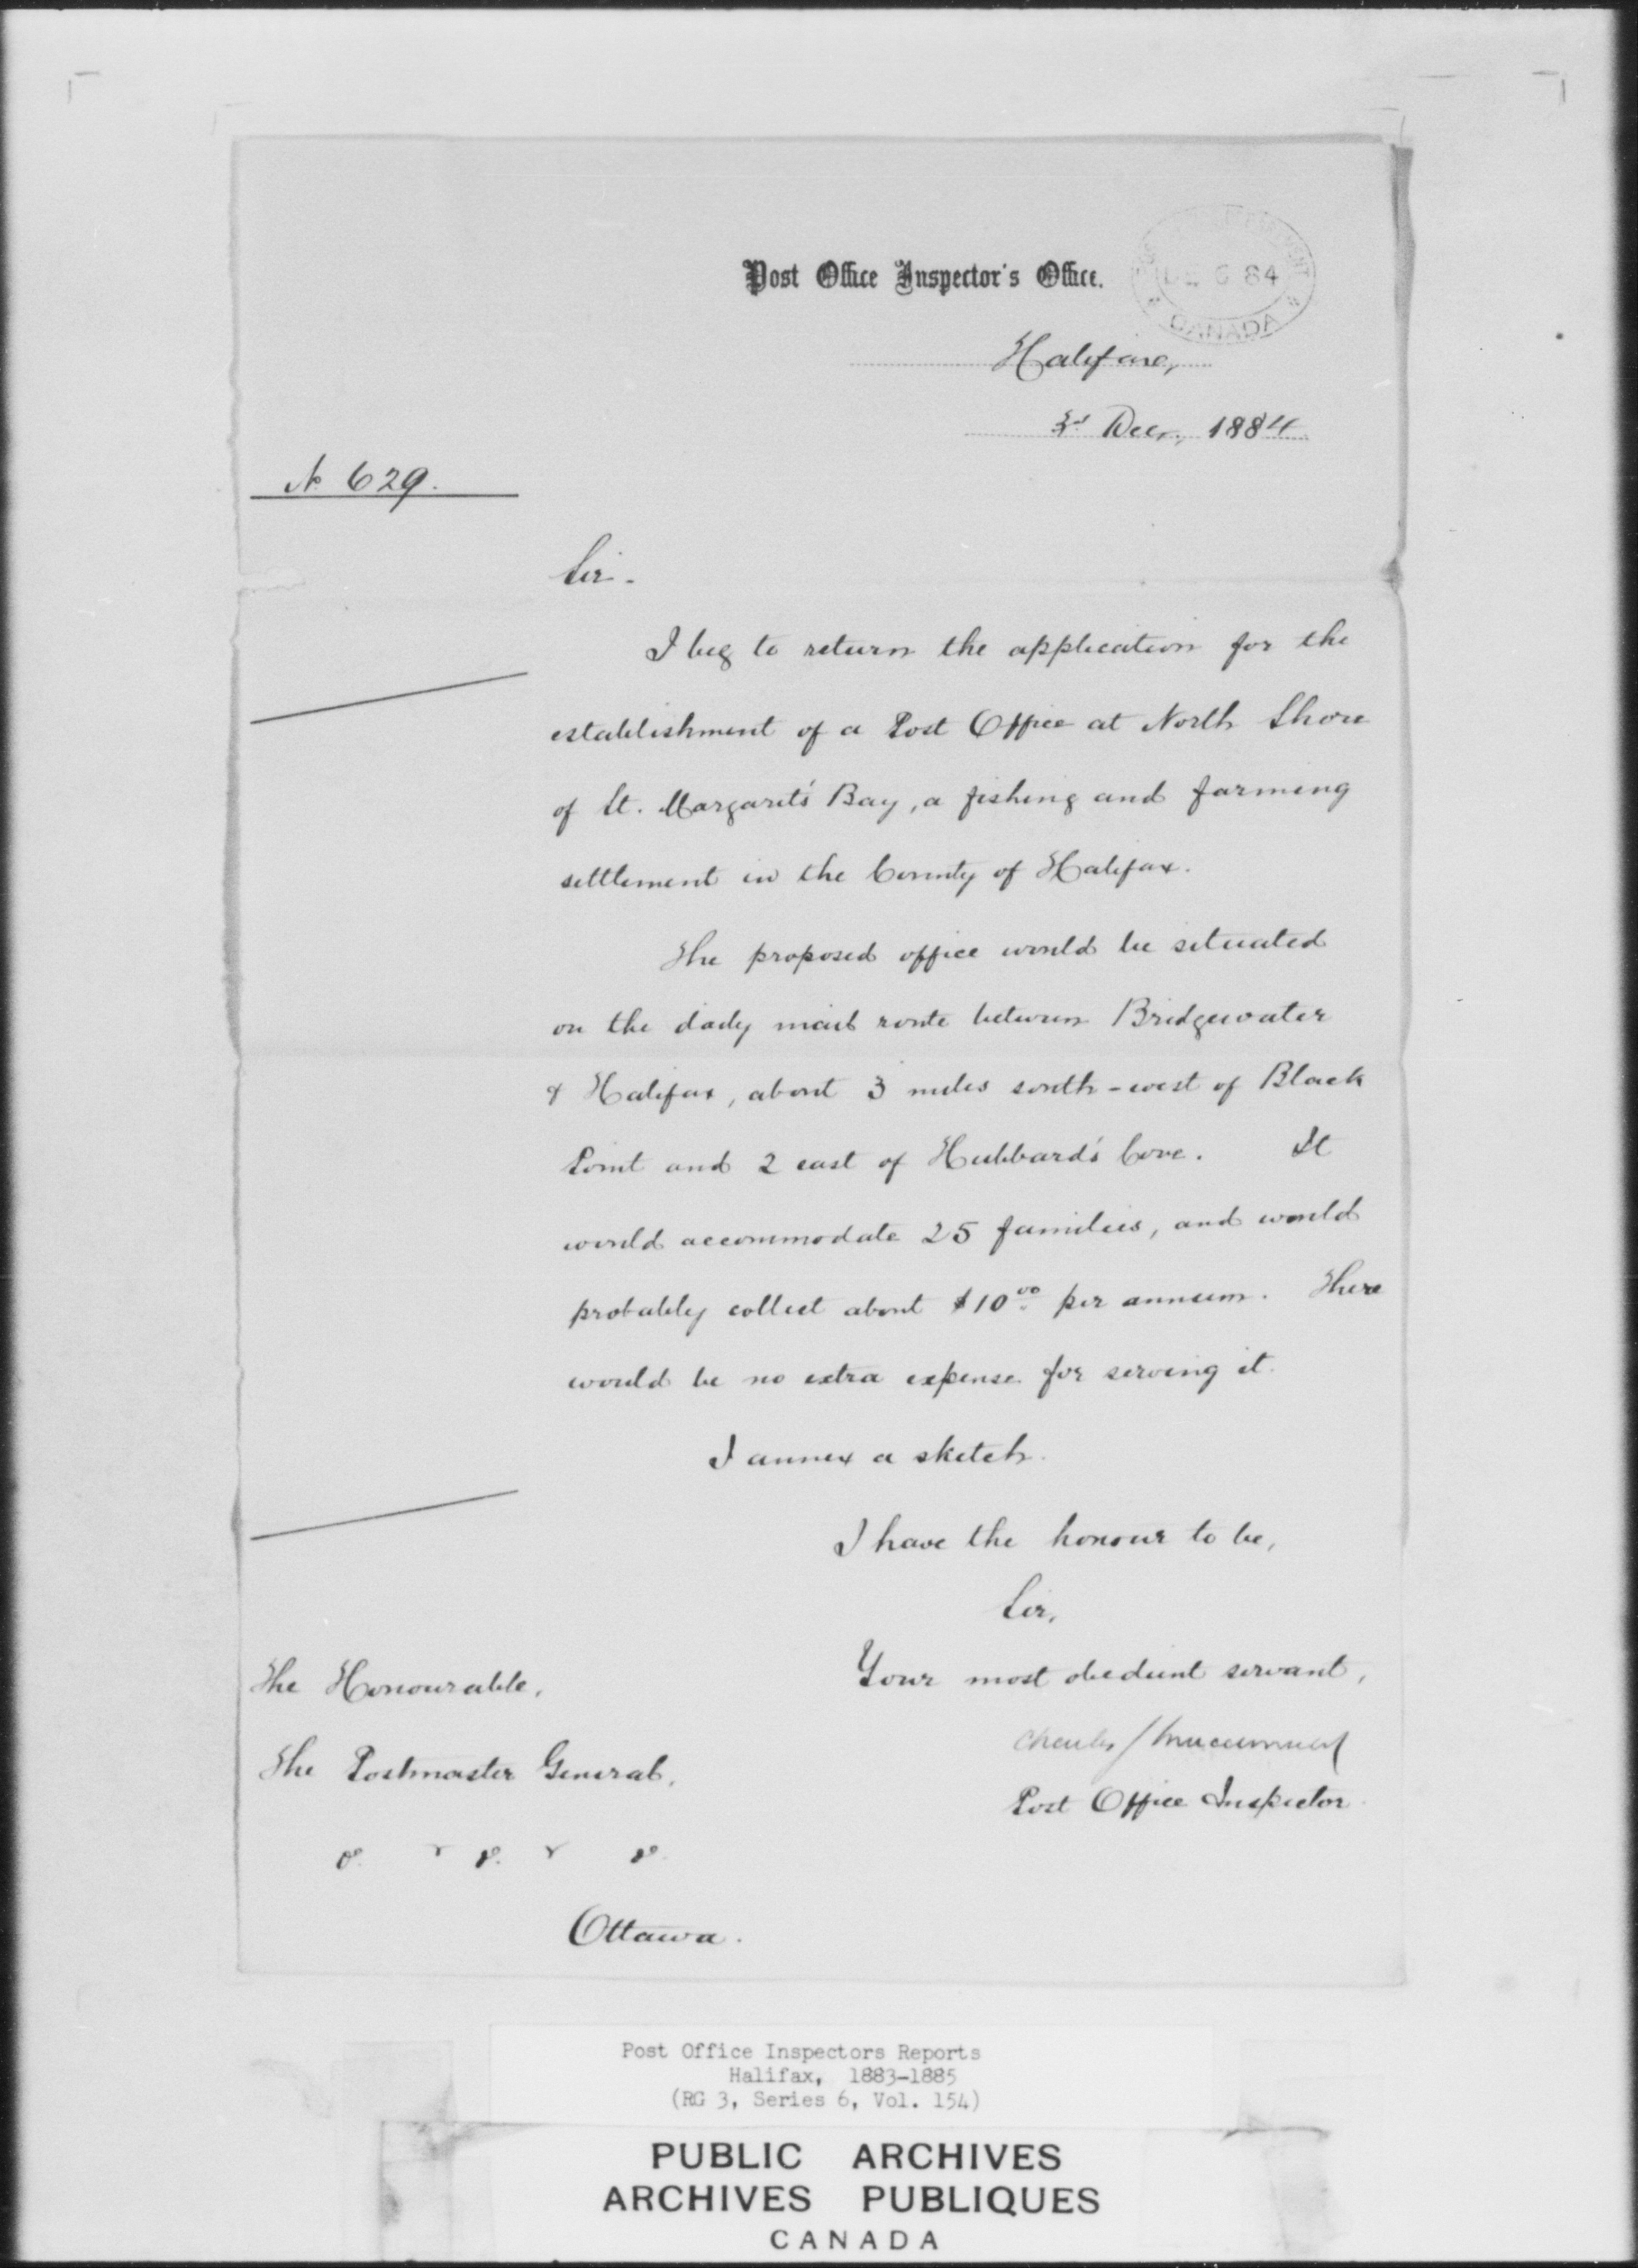 Post Office Inspector's Office.
84
CANADA
Halifax,
3d Decr., 1884
No 629.
Sir -
I beg to return the application for the
establishment of a Post Office at North Shore
of St. Margaret's Bay, a fishing and farming
settlement in the County of Halifax.
The proposed office would be situated
on the daily mail route between Bridgewater
& Halifax, about 3 miles south-west of Black
Point and 2 east of Hubbard's Cove. It
would accommodate 25 families, and would
probably collect about $10.00 per annum. There
would be no extra expense for serving it.
I annex a sketch.
I have the honour to be,
Sir,
Your most obedient servant,
Charles
Post Office Inspector.
The Honourable,
The Postmaster General,
Ottawa.
Post Office Inspectors Reports
Halifax, 1883-1885
(RG 3, Series 6, Vol. 154)
PUBLIC ARCHIVES
ARCHIVES PUBLIQUES
CANADA